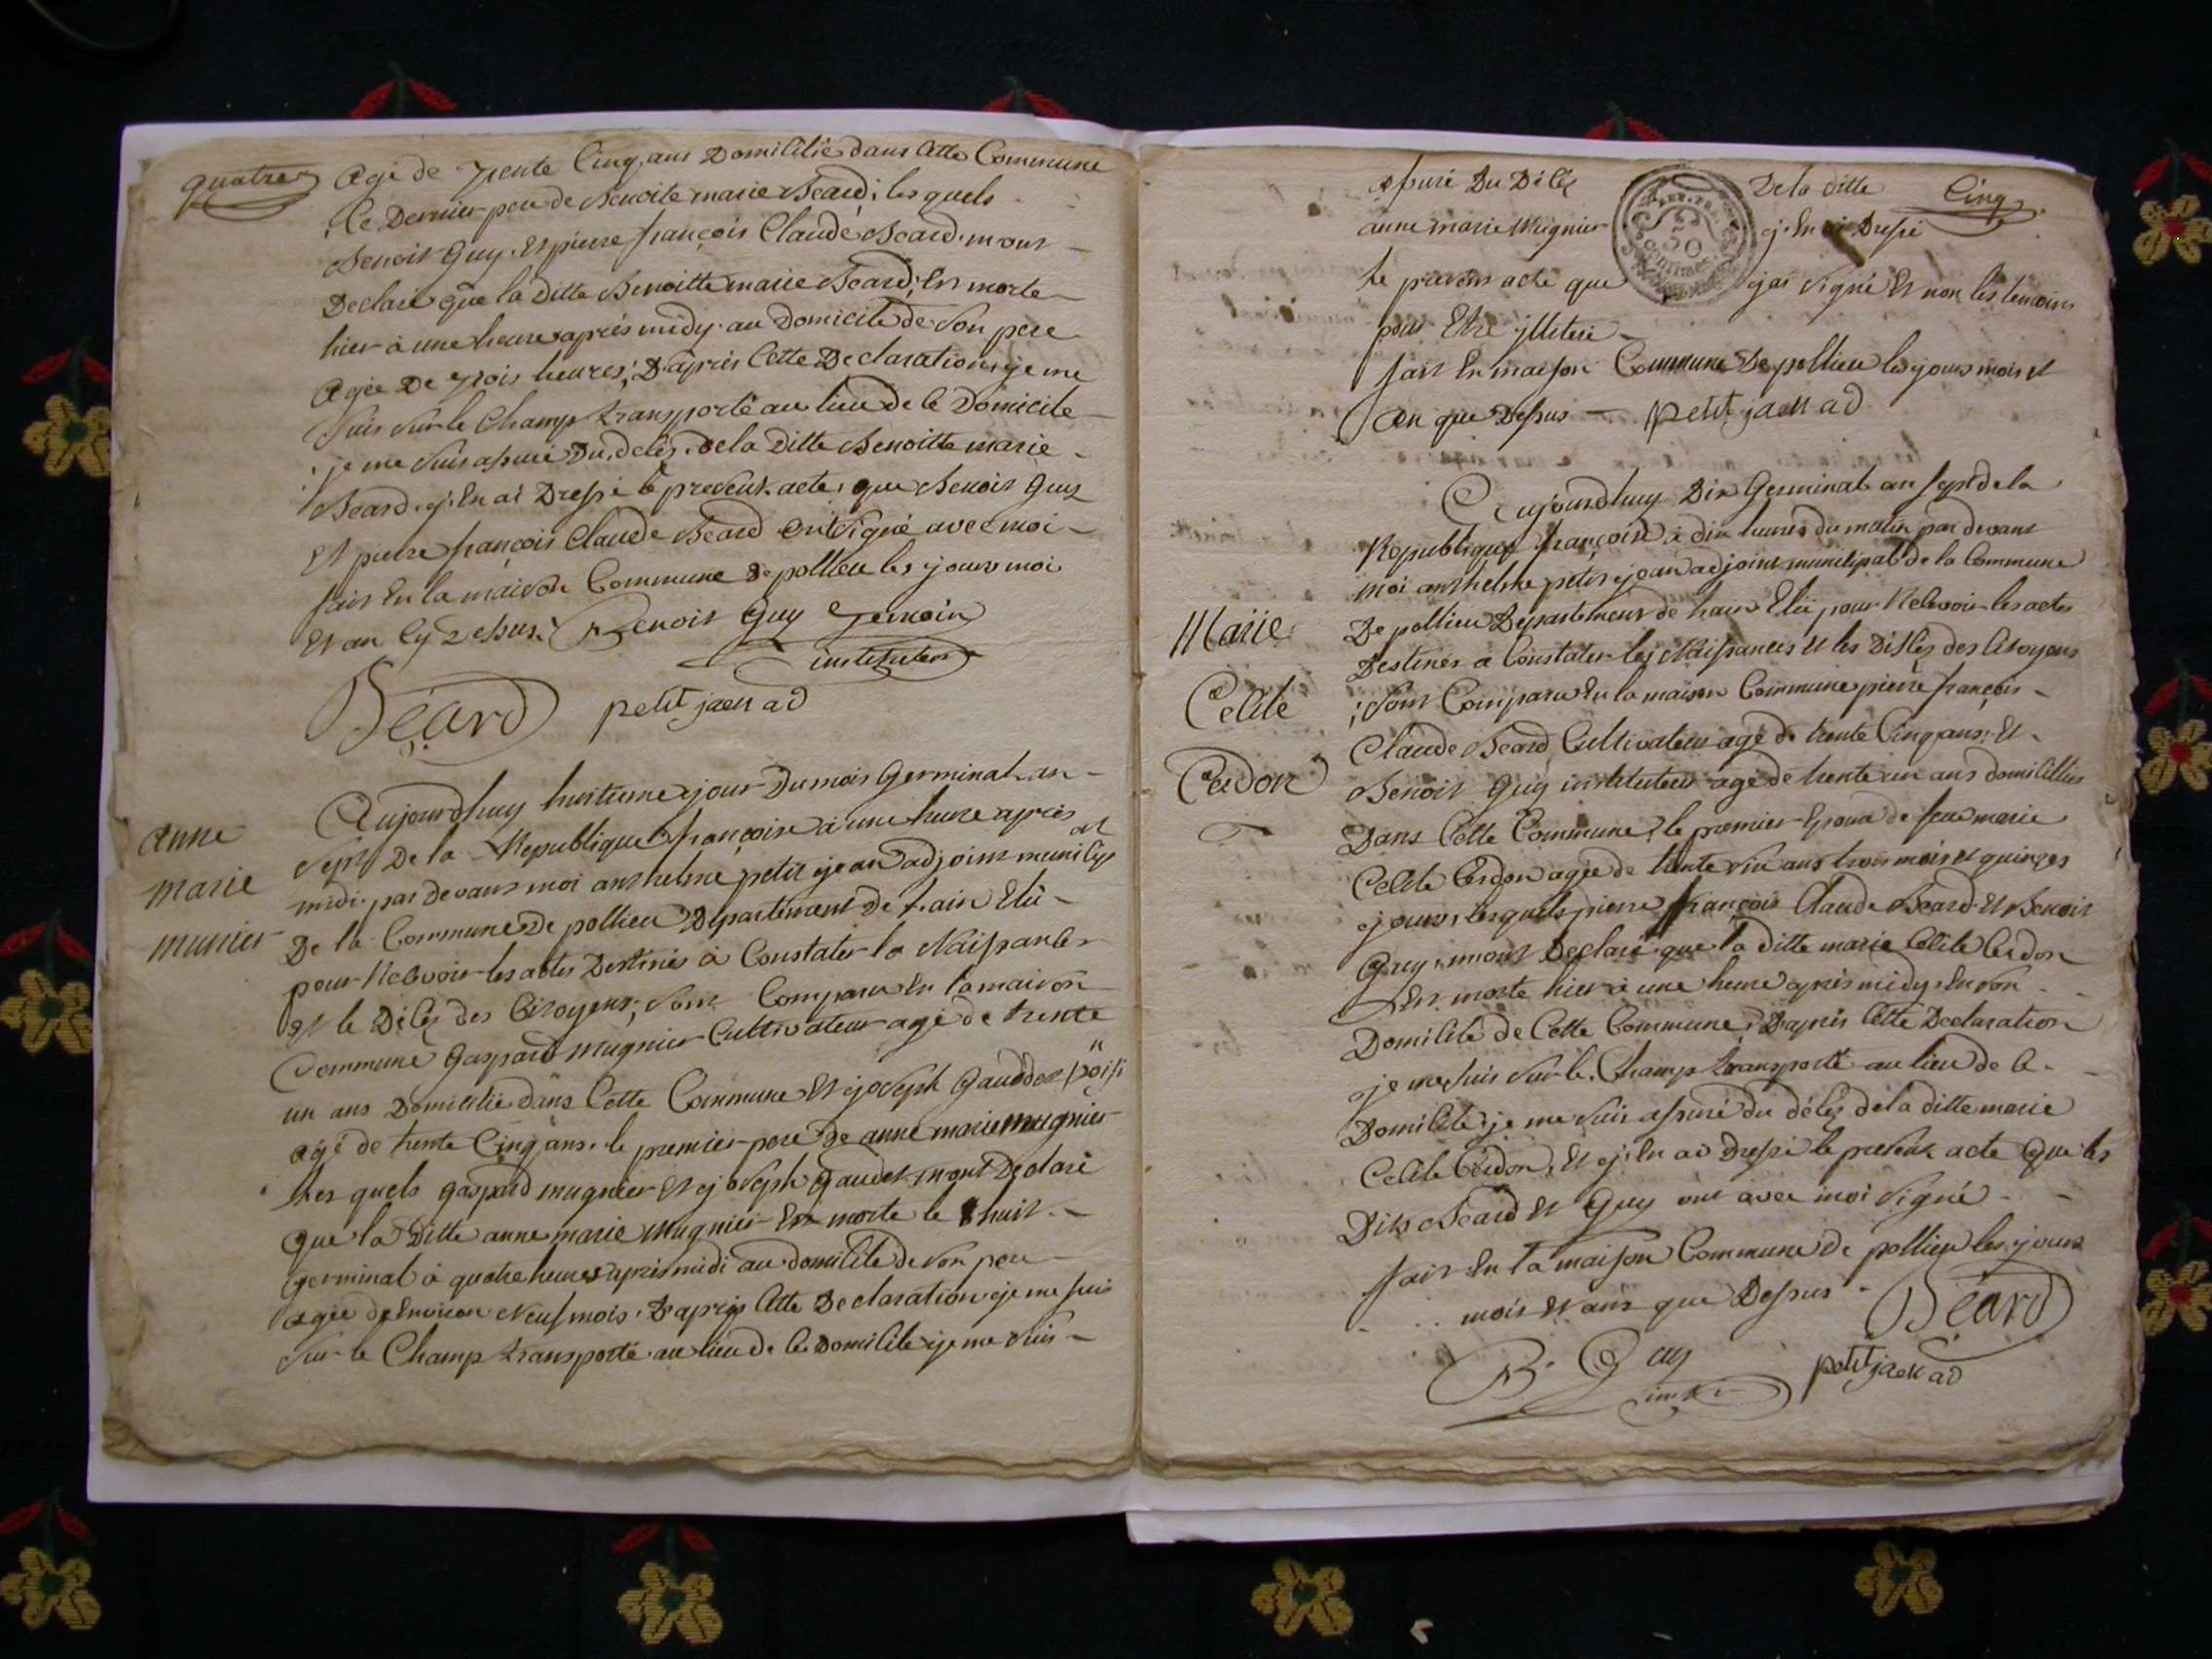 quatre
agé de Trente Cinq ans Domicilié dans Cette Commune
le Dernier pere de Benoite marie Beard; les quels
Benoit Guy. Et pierre françois Claude Beard. mont
Declaré que la ditte Benoitte marie Beard; En morte
hier à une heure après midy. au Domicile de Son pere
agée De Trois heures; D'après Cette Declaration, je me
suis sur le Champ transporté au lieu de Ce Domicile
je me suis assuré Du déléz. de la Ditte Benoitte marie
Beard. j. En ai Dressé le present acte, que Benoit Guy
Et pierre françois Claude Beard ont signé avec moi
fait En la maison Commune de pollieu les jours moi
Et an Cy Dessus. Benoit Guy Temoin
instituteur
Béard petit jaen ad
anne
marie
munier
Aujourdhuy huitieme jour Du mois Germinal an
Sept De la Republique françoise à une heure après
midi. par devant moi anthelme petit jean adjoint municip al
De la Commune De pollieu Departement De hain Elû
pour Recevoir les actes Destinés à Constater la Naissance
Et le Déléz des Citoyens; sont Comparu En la maison
Commune Gaspard Mugnier Cultivateur agé de trente
un ans Domicilié dans Cette Commune Et joseph Gaudet
agé de trente Cinq ans. le premier pere De anne marie mugnier
les quels gaspard mugnier Et joseph gaudet mont Declaré
que la Ditte anne marie Mugnier En morte le 8 huit
germinal à quatre heures après midi au domicile de son pere
agée de Environ Neuf mois. D'après Cette Declaration je me suis
sur le Champ transporté au lieu de Ce Domicile je me suis
Cinq
assuré Du Déléz De la ditte
anne marie Mugnier j. En ai Dressé
le present acte que jai signé Et non les temoins
pour Etre jlliteré
fait En maison Commune De pollieu les jours mois et
an que Dessus petit jaen ad
50
Marie
Celile
Cerdon
Aujourdhuy Dix Germinal an sept de la
Republique françoise à dix heures du matin par devant
moi anthelme petit jean adjoint municipal de la Commune
De pollieu Departement de hain Elû pour Recevoir les actes
Destinés à Constater les Naissances Et les Déléz des Citoyens
sont Comparu En la maison Commune pierre françois
Claude Beard Cultivateur agé de trente Cinq ans; Et
Benoit Guy instituteur agé de trente un ans domicilliés
Dans Cette Commune, le premier Epoux de feue marie
Celile Cerdon agée de trente six ans trois mois et quinzes
jours, lesquels pierre françois Claude Beard Et Benoit
Guy, mont Declaré que la ditte marie Celile Cerdon
En morte hier à une heure après midy. En son
Domicile de Cette Commune, D'après Cette Declaration
je me suis sur le Champ transporté au lieu de Ce
Domicile, je me suis assuré du déléz de la ditte marie
Celile Cerdon, Et j. En ai Dressé le present acte que les
Dits Beard Et Guy ont avec moi signé
fait En la maison Commune de pollieu les jours
mois Et ans que Dessus Béard
B. Guy petit jaen ad